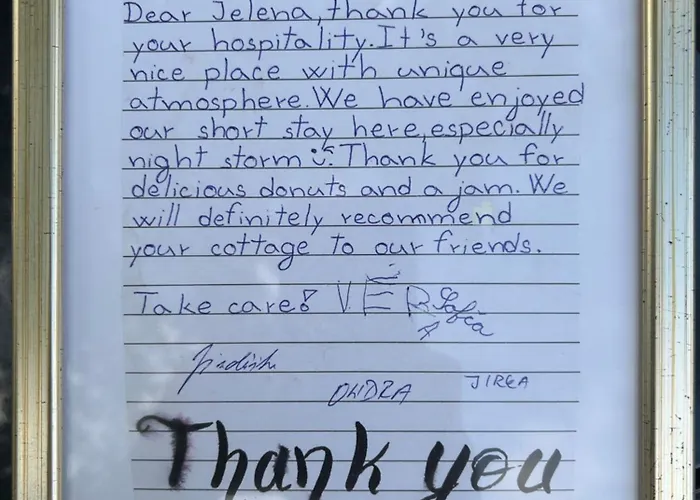 Dear Jelena, thank you for
your hospitality. It's a very
nice place with unique
atmosphere. We have enjoyed
our short stay here, especially
night storm Thank you for
delicious donuts and a jam. We
will definitely recommend
your cottage to our friends.
Take care!
ONDRA
Thank you